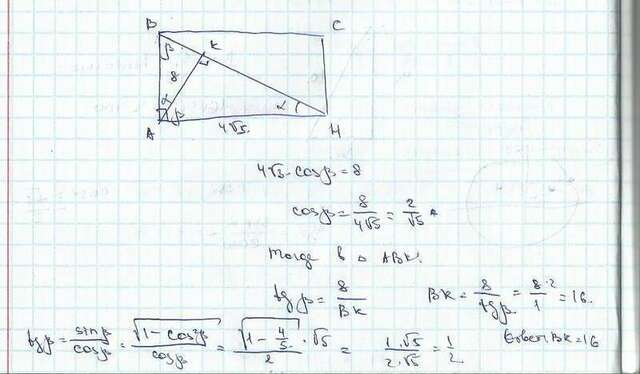 B C
β K
8
α α
A β H
4√5.
4√5 · cosβ = 8
cosβ = 8/(4√5) = 2/√5
тогда в △ ABK:
tgβ = 8/BK BK = 8/tgβ = 8·2/1 = 16.
tgβ = sinβ/cosβ = √(1-cos²β)/cosβ = √(1-4/5)·√5/2 = 1·√5/(2·√5) = 1/2. Ответ BK=16